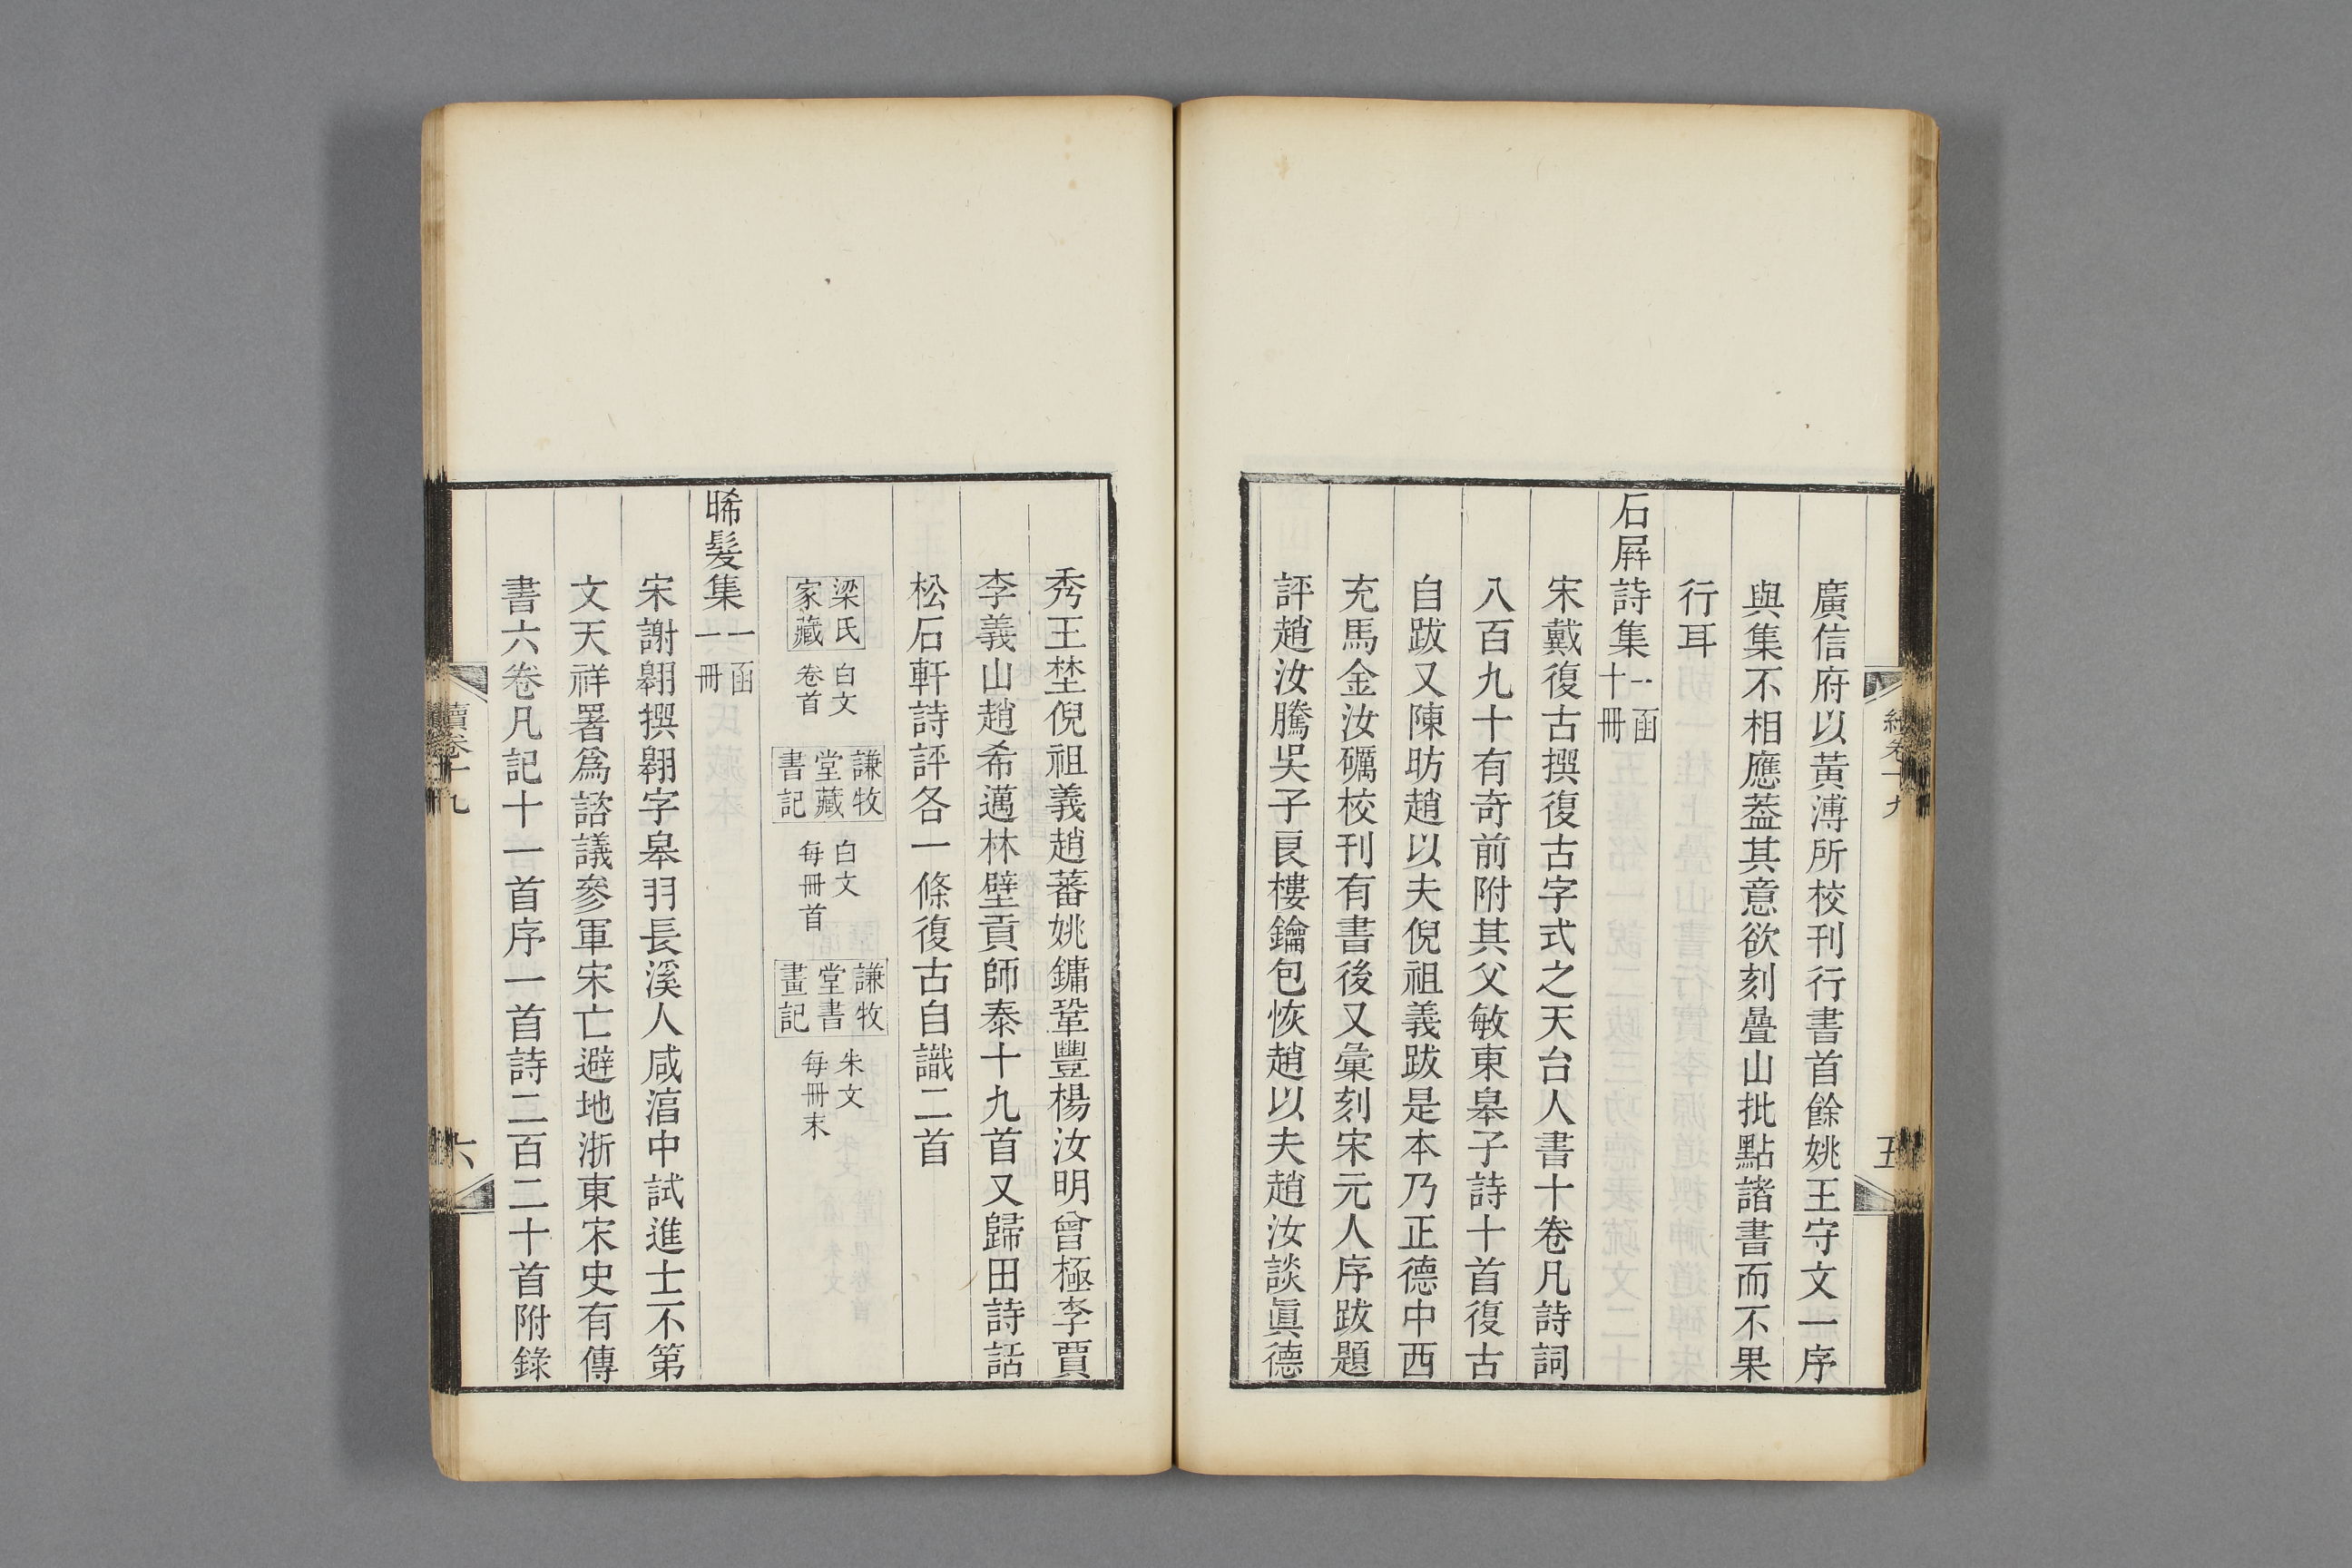 廣信府以黃溥所校刊行書首餘姚王守文一序
與集不相應葢其意欲刻疊山批點諸書而不果
行耳
石屛詩集一函十冊
宋戴復古撰復古字式之天台人書十卷凡詩詞
八百九十有奇前附其父敏東皋子詩十首復古
自跋又陳昉趙以夫倪祖義跋是本乃正德中西
充馬金汝礪校刊有書後又彙刻宋元人序跋題
評趙汝騰吳子良樓鑰包恢趙以夫趙汝談眞德
五
秀王埜倪祖義趙蕃姚鏞鞏豐楊汝明曾極李賈
李義山趙希邁林壁貢師泰十九首又歸田詩話
松石軒詩評各一條復古自識二首
梁氏家藏 白文卷首 謙牧堂藏書記 白文每冊首 謙牧堂書畫記 朱文每冊末
晞髮集一函一冊
宋謝翺撰翺字皋羽長溪人咸淳中試進士不第
文天祥署爲諮議參軍宋亡避地浙東宋史有傳
書六卷凡記十一首序一首詩二百二十首附錄
續卷十九
六